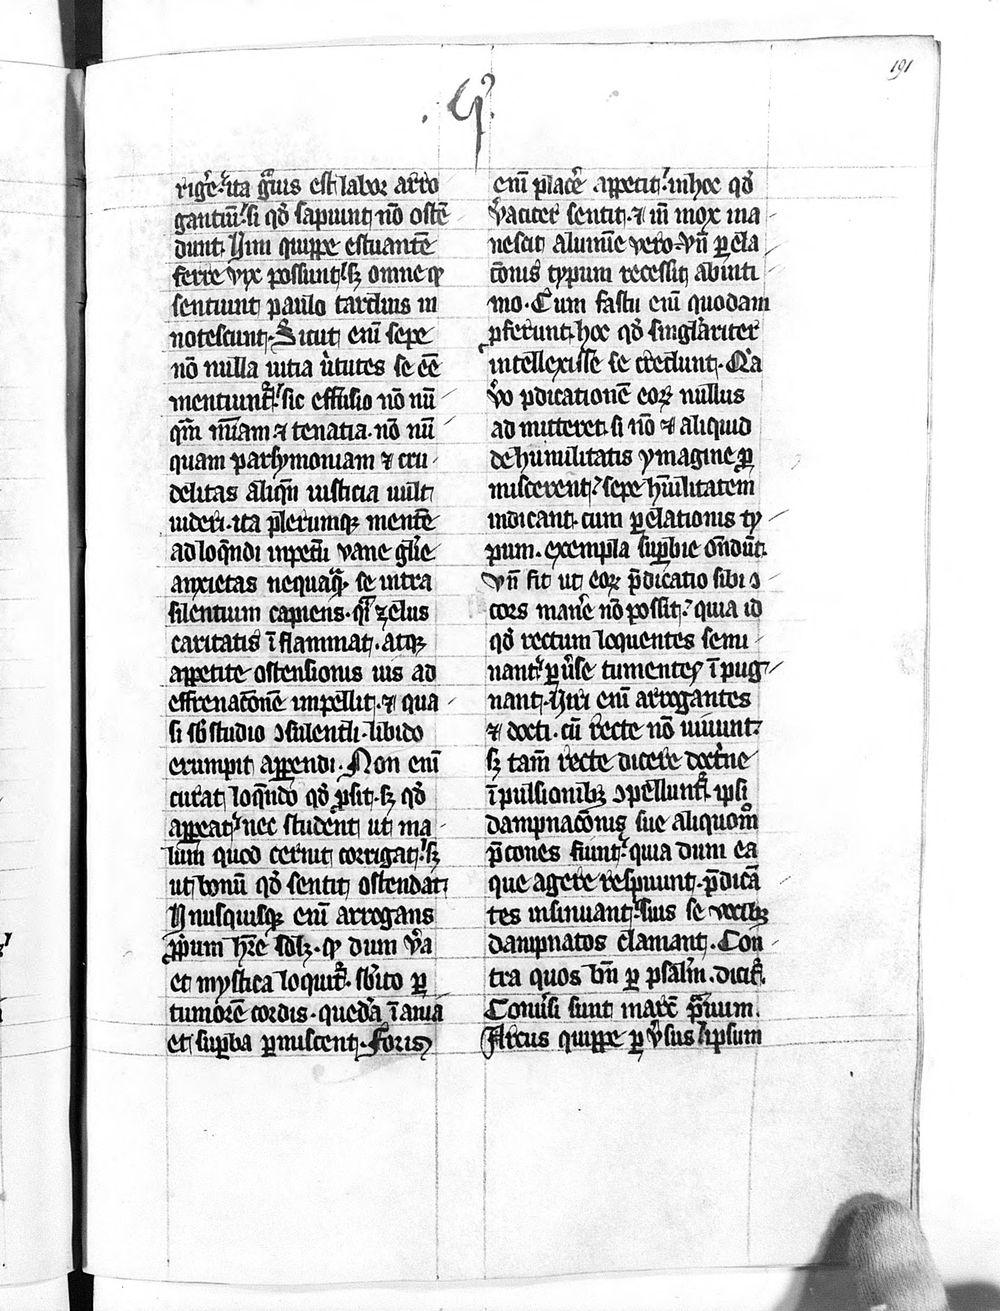 191
.G.
rigẽ. ita gͣuis est labor arro
gantiũ. si qđ sapiunt nõ ostẽ
dunt. Hini quippe estuantẽ
ferre vix possunt. sȝ omne qͥ
sentiunt paulo tardius in
notescunt. Sicut eni᷑ sepe
nõ nulla uitia ũtutes se eẽ
mentiunt᷑. sic effusio nõ nũ
qͣm mĩam ⁊ tenatia nõ nũ
quam parsymoniam ⁊ cru
delitas aliqñ iusticia uult
uideri. ita plerumqꝫ mentẽ
ad loqñdi inpetũ vane gl̃ie
anxietas nequaqͣꝫ se intra
silentium capiens. qͣsi zelus
caritatis ĩflammat. atqꝫ
appetite ostensionis uis ad
effrenatõne impellit. ⁊ qua
si sb̃ studio ↄsulendi. libido
erumpit appendi. Non enĩ
curat loqñdo qđ ꝓsit. sꝫ qđ
appeat. nec studẽt ut ma
lum quod cernit corrigat. sꝫ
ut bonũ qđ sentit ostendat.
Unusquisqꝫ enĩ arrogans
ꝓprium hr̃e solꝫ. qͥ dum ṽa
et mystica loquit᷑. sb̃ito ꝑ
tumorẽ cordis. quedã ĩania
et suꝑba ꝑmiscent. Foris
enĩ placẽ appetit. in hoc qđ
ṽaciter sentit. ⁊ iñ mox ma
nescit a lumĩe vero. vñ ꝑ ela
tõnis typum recessit ab inti
mo. Cum fastu enĩ quodam
ꝓferunt. hoc qđ singlariter
intellexisse se credunt. Qͥa
ṽo p̃dicationẽ eoꝝ nullus
ad mitteret. si nõ ⁊ aliquid
de humilitatis ymagine ꝑ
miscerent. sepe hũilitatem
indicant. cum ꝑ elationis ty
pum. exempla suꝑbie oñdũt.
Vñ fit ut eoꝝ p̃dicatio sibi ↄ
cors manẽ nõ possit. quia id
qđ rectum loquentes semi
nant. ꝑ ũse tumentes ĩpug
nant. Hiri enĩ arrogantes
⁊ docti. cũ recte nõ uiuunt.
sꝫ tam̃ recte dicere doctrine
ĩpulsionibꝫ ↄpellunt᷑. ipsi
dampnatõnis sue aliquom̃
p̃cones fiunt. quia dum ea
que agere respuunt. p̃dicã
tes insinuant. suis se vocibꝫ
dampnatos clamant. Con
tra quos bñ ꝑ psalm̃. dicit᷑.
Conũsi sunt in arcũ pͣuum.
Arcus quippe ꝑ ṽsus h̃ ipsum